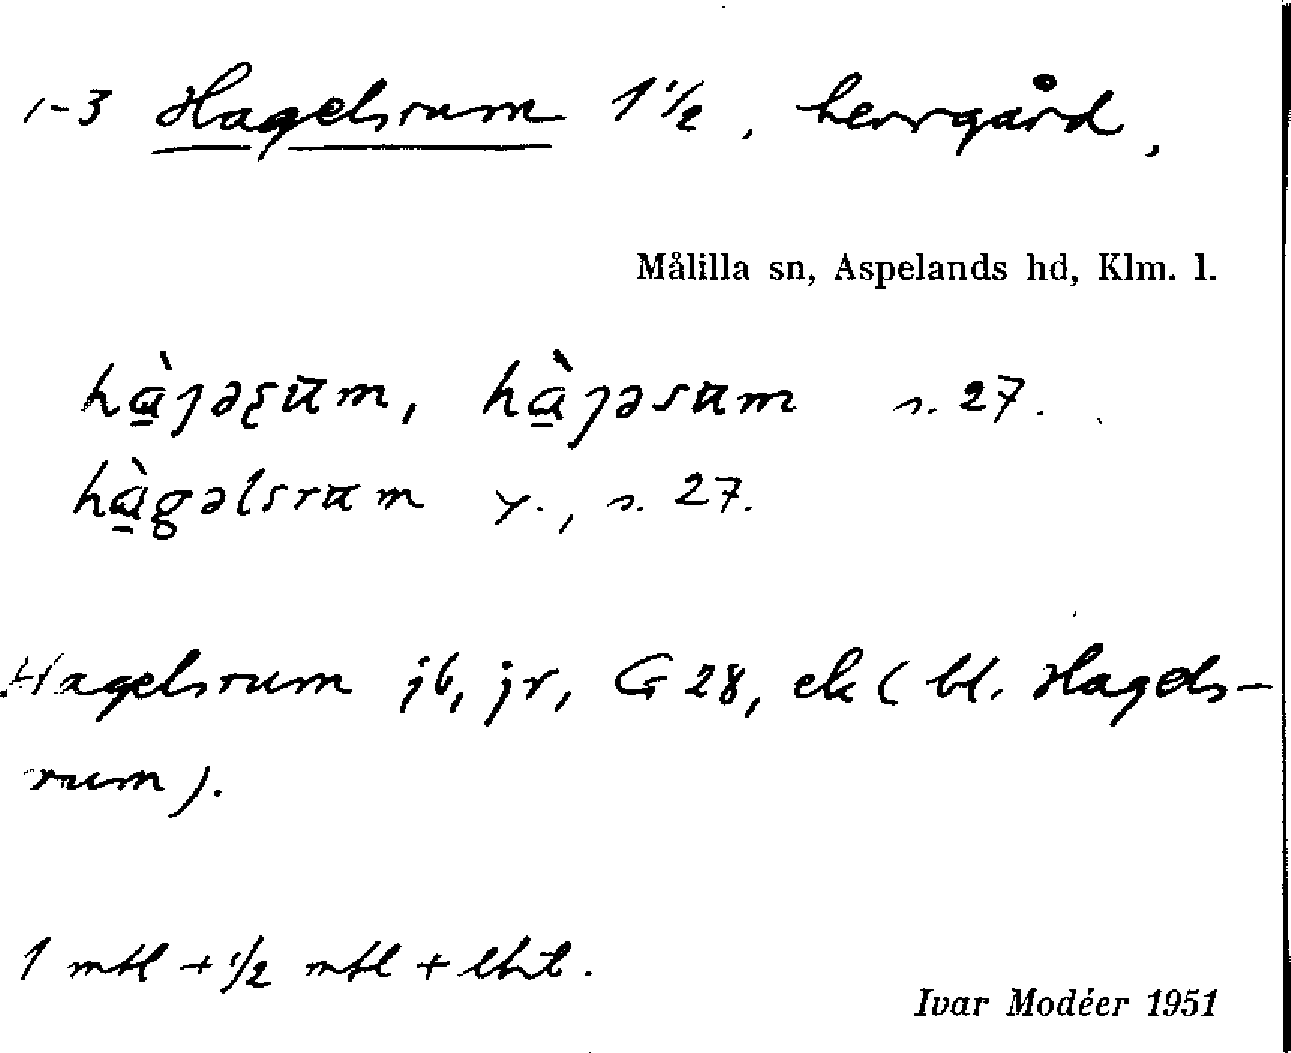 1-3 Hagelsrum 1 1/2, herrgård,
Målilla sn, Aspelands hd, Klm. l.
s. 27.
hàgəlsrum y., s. 27.
Hagelsrum jb, jr, G 28, ek (bl. Hagels-
rum).
1 mtl + 1/2 mtl + lht.
Ivar Modéer 1951